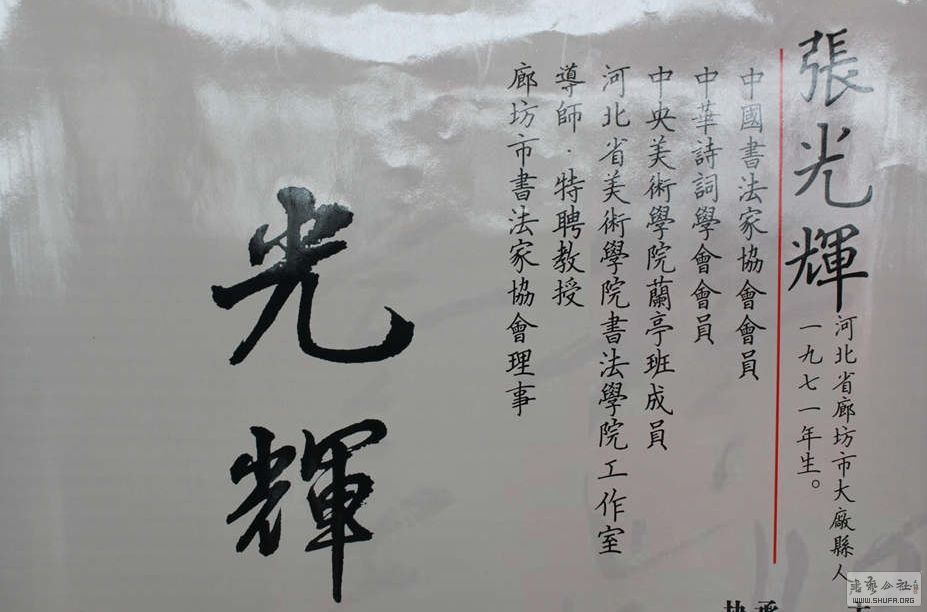 張光輝
河北省廊坊市大廠縣人
一九七一年生。
中國書法家協會會員
中華詩詞學會會員
中央美術學院蘭亭班成員
河北省美術學院書法學院工作室
導師·特聘教授
廊坊市書法家協會理事
光輝
書藝公社
WWW.SHUFA.ORG